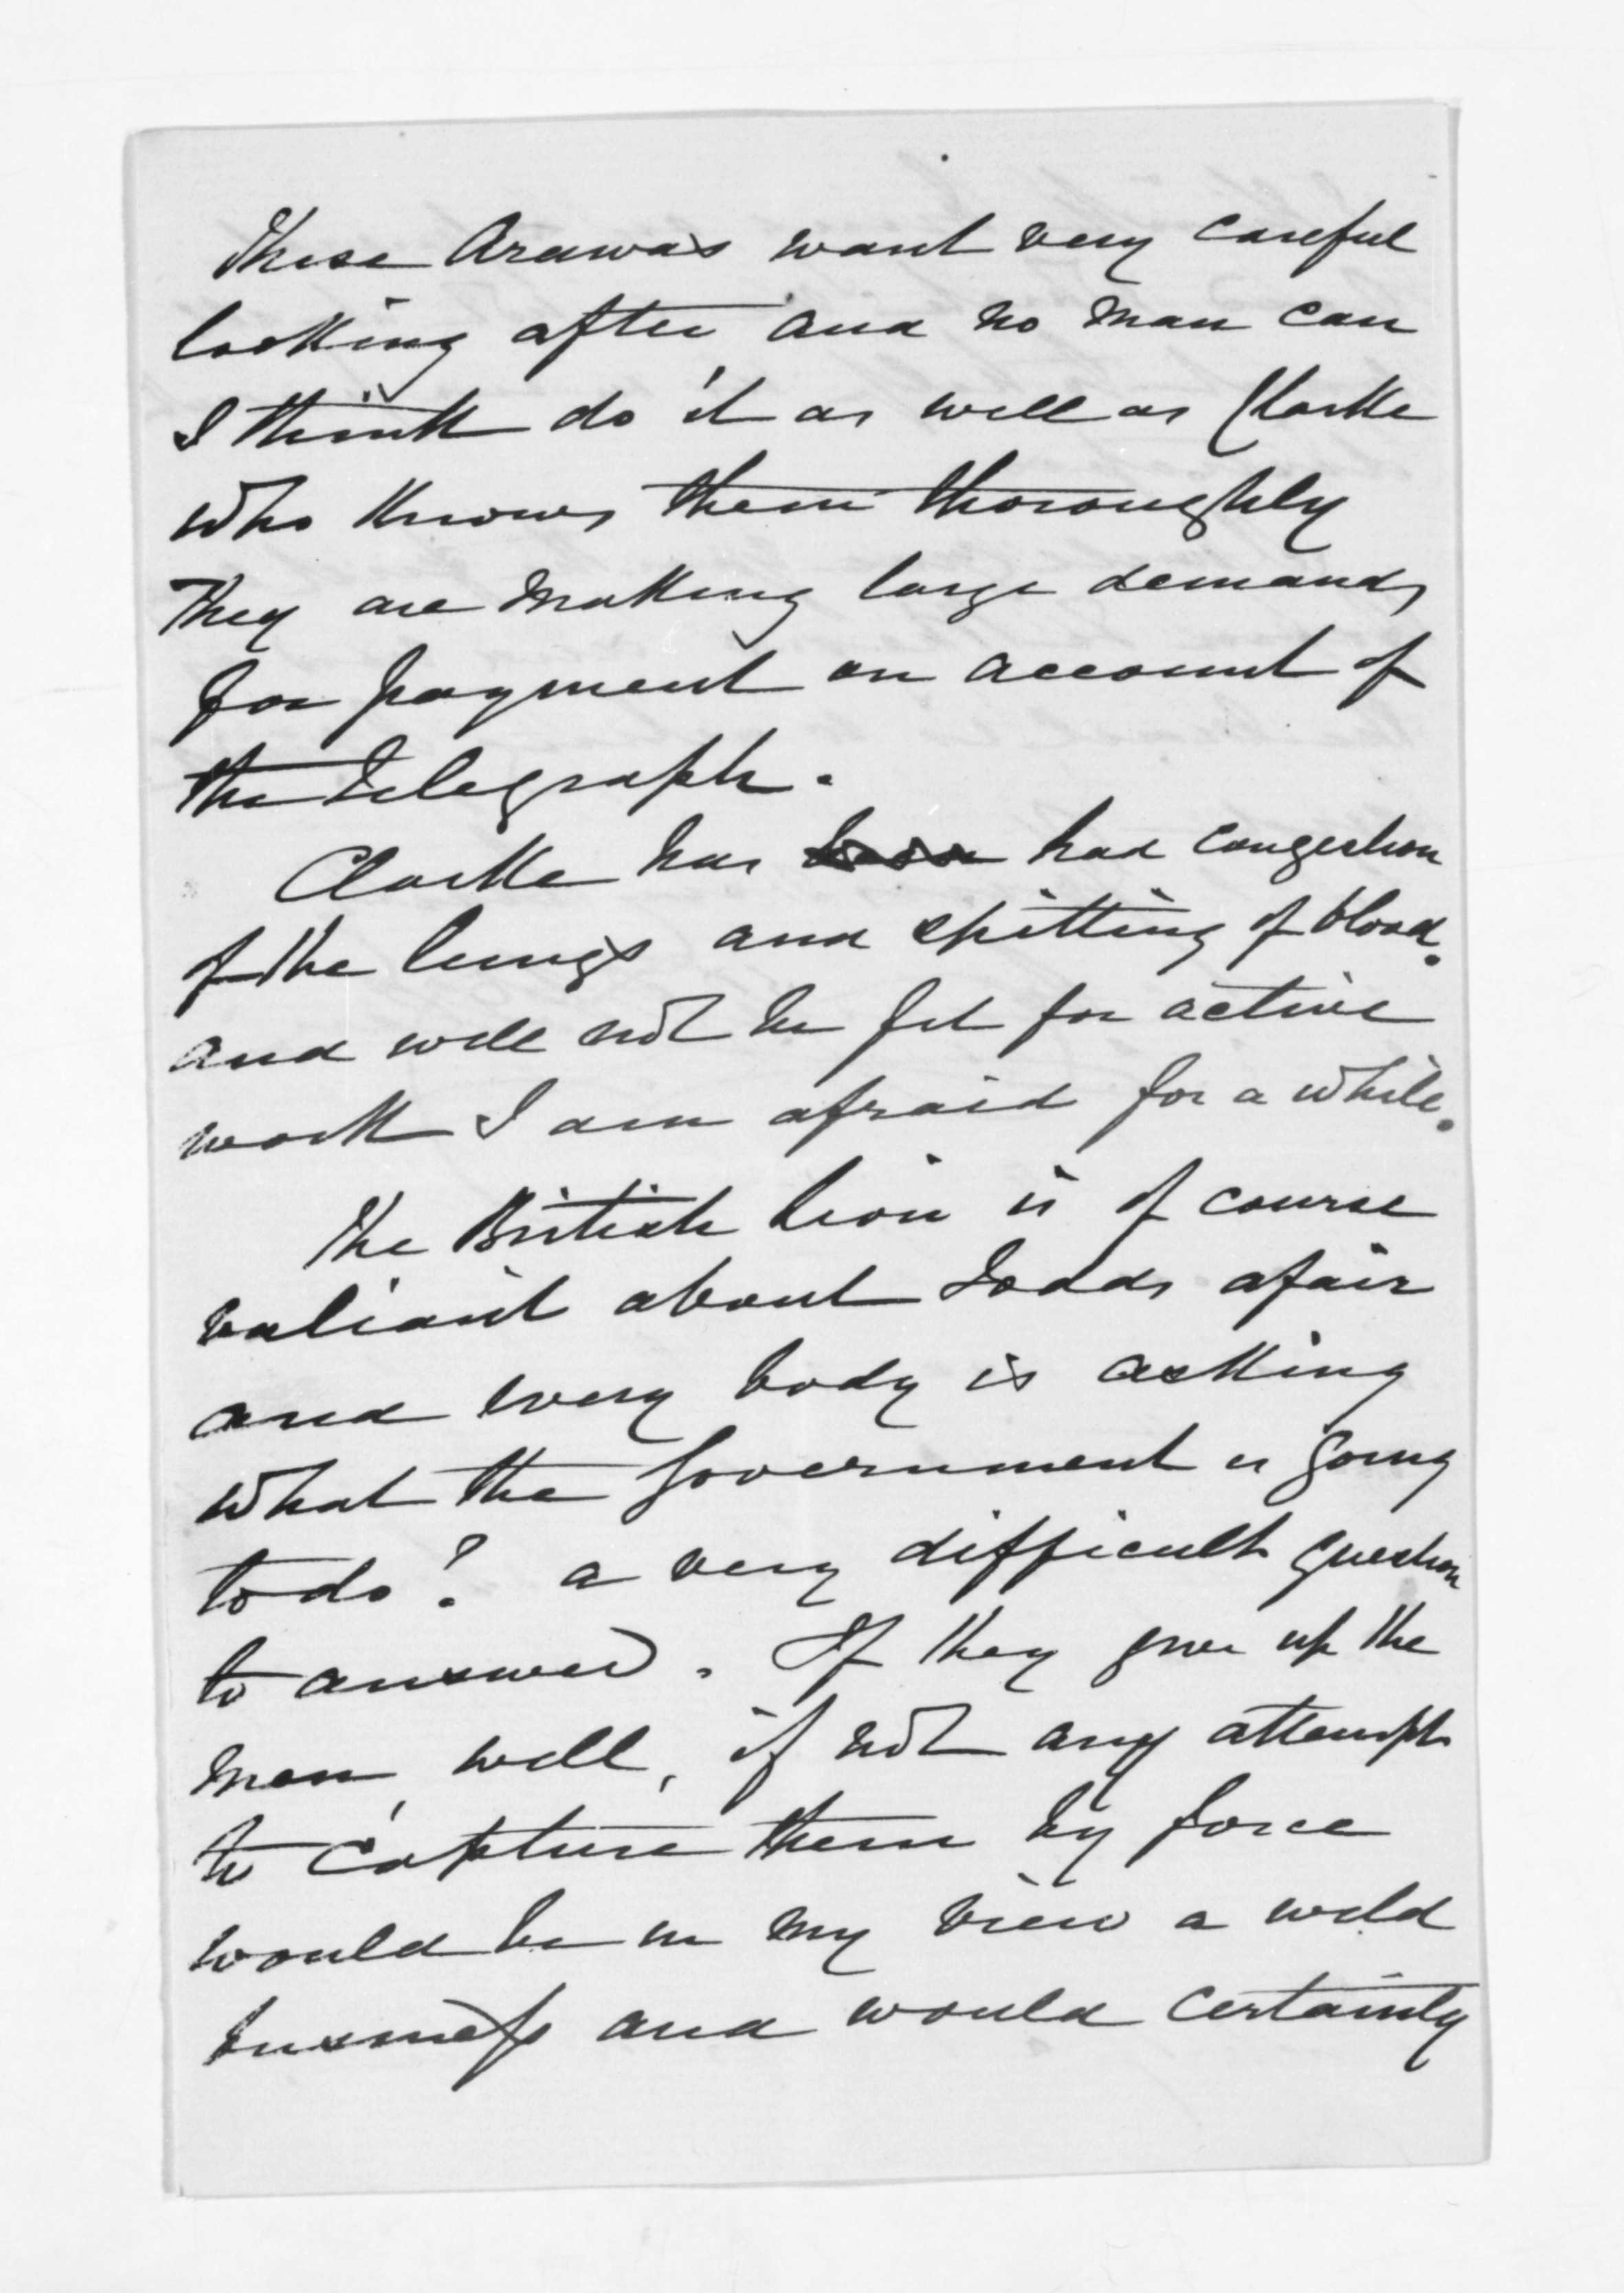 These Arawas want very careful
looking after and no man can
I think do it as well as Clarke
who knows them thoroughly
They are making large demands
for payment on account of
the Telegraph.
Clarke has had congestion
of the lungs and spitting of blood.
and will not be fit for active
work I am afraid for a while.
The British lion is of course
valiant about Todds afair
and every body is asking
what the Government is going
to do? a very difficult question
to answer. If they give up the
men, well, if not any attempt
to capture them by force
would be in my view a wild
business and would certainly